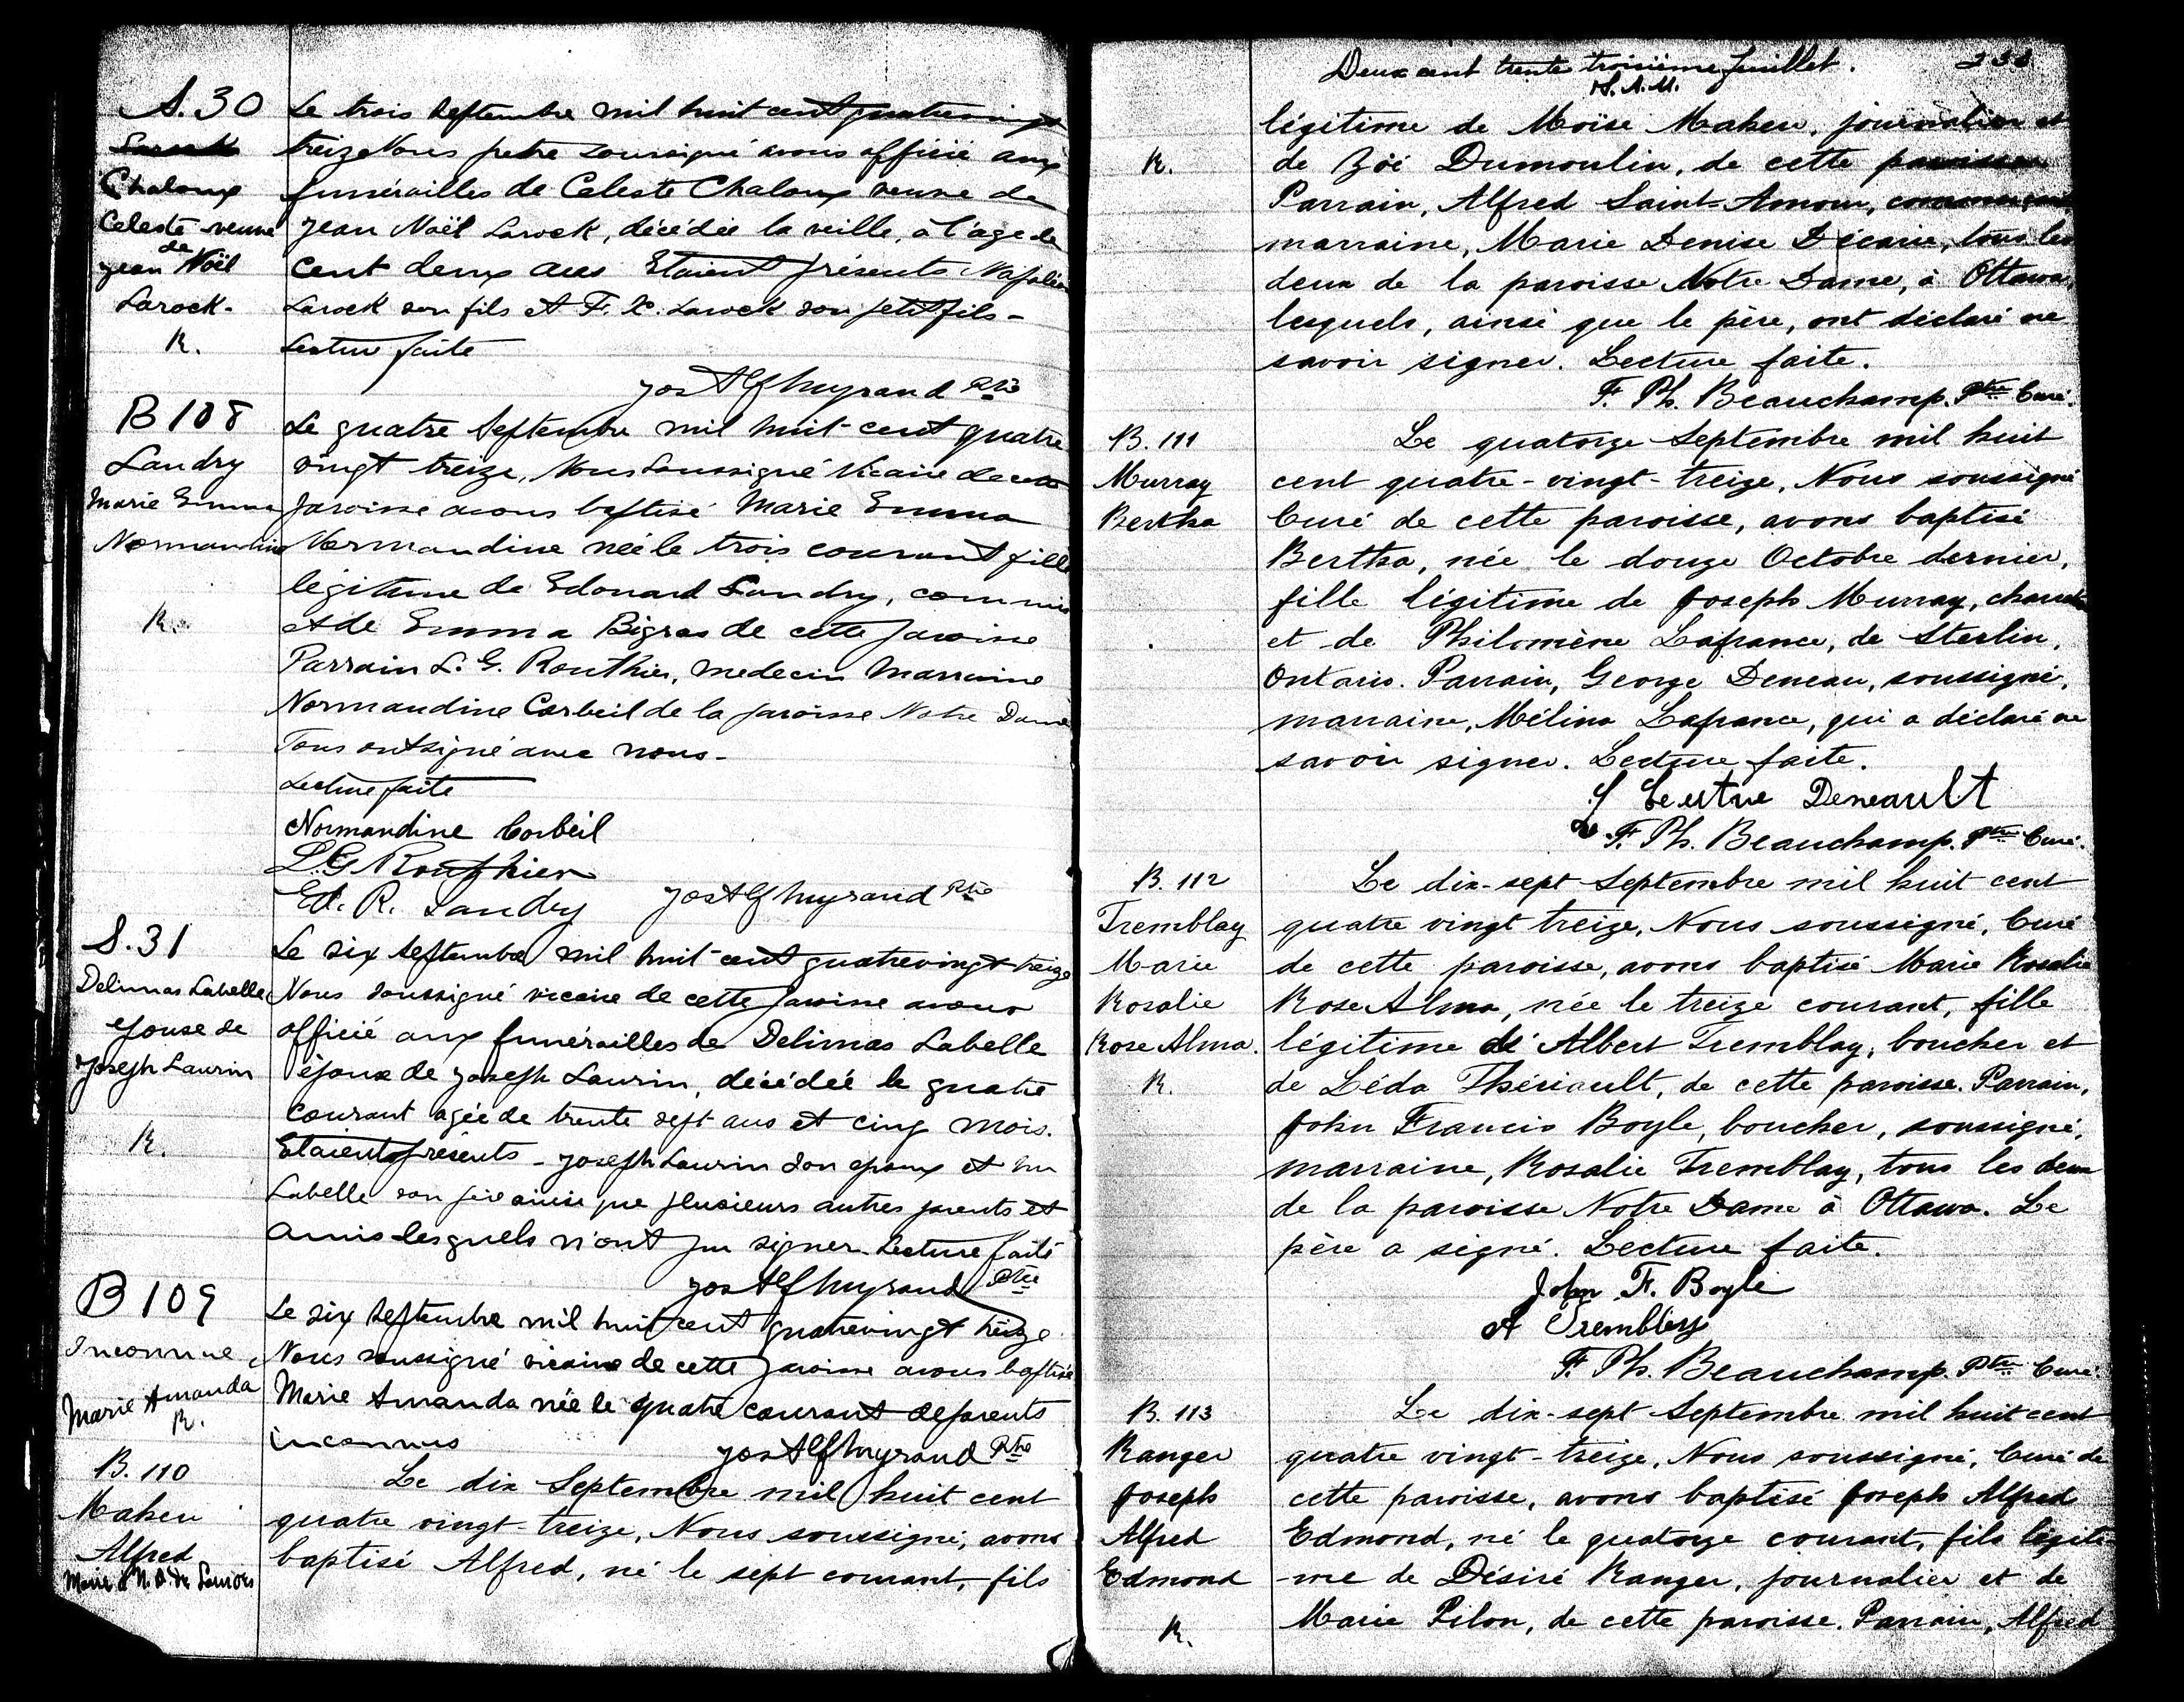 S. 30
Chaloux
Celeste veuve
de
Jean Noël
Larock.
R.
Le trois Septembre mil huit cent quatrevingt
treize Nous pretre soussigné avons officié aux
funérailles de Celeste Chaloux veuve de
Jean Noël Larock, décédée la veille, à l'age de
cent deux ans Etaient présents Napoléon
Larock son fils et F. X. Larock son petit fils -
Lecture faite
Jos Alf Myrand Ptre
B 108
Landry
Marie Emma
Normandine
R.
Le quatre Septembre mil huit-cent quatre
vingt treize, Nous Soussigné Vicaire de cette
paroisse avons baptisé Marie Emma
Normandine née le trois courant fille
légitime de Edouard Landry, commis
et de Emma Bigras de cette paroisse
Parrain L. G. Routhier, medecin Marraine
Normandine Corbeil de la paroisse Notre Dame
Tous ont signé avec nous -
Lecture faite
Normandine Corbeil
L.G Routhier
Ed. R. Landry Jos Alf Myrand Ptre
S. 31
Delimas Labelle
epouse de
Joseph Laurin
R.
Le six Septembre mil huit-cent quatrevingt-treize
Nous soussigné vicaire de cette paroisse avons
officié aux funérailles de Delimas Labelle
épouse de Joseph Laurin, décédée le quatre
courant agée de trente sept ans et cinq mois.
Etaient présents - Joseph Laurin son epoux et
Labelle son père ainsi que plusieurs autres parents et
amis lesquels n'ont pu signer. Lecture faite
Jos Alf Myrand Ptre
B 109
Inconnue
Marie Amanda
R.
Le six Septembre mil huit cent quatrevingt treize
Nous soussigné vicaire de cette paroisse avons baptisé
Marie Amanda née le quatre courant de parents
inconnus
Jos Alf Myrand Ptre
B. 110
Maheu
Alfred
Le dix Septembre mil huit cent
quatre vingt-treize, Nous soussigné, avons
baptisé Alfred, né le sept courant, fils
Deux cent trente troisième feuillet. 233
légitime de Moïse Maheu, journalier et
R.
de Zoé Dumoulin, de cette paroisse
Parrain, Alfred Saint-Amour,
marraine, Marie Denise Décarie, tous les
deux de la paroisse Notre Dame, à Ottawa,
lesquels, ainsi que le père, ont déclaré ne
savoir signer. Lecture faite.
F. Ph. Beauchamp. Ptre Curé.
B. 111
Murray
Bertha
Le quatorze Septembre mil huit
cent quatre-vingt-treize, Nous soussigné
Curé de cette paroisse, avons baptisé
Bertha, née le douze Octobre dernier,
fille légitime de Joseph Murray,
et de Philomène Lafrance, de Sterlin,
Ontario. Parrain, George Deneau, soussigné,
marraine, Mélina Lafrance, qui a déclaré ne
savoir signer. Lecture faite.
Deneault
F. Ph. Beauchamp. Ptre Curé.
B. 112
Tremblay
Marie
Rosalie
Rose Alma.
R.
Le dix-sept Septembre mil huit cent
quatre vingt treize, Nous soussigné, Curé
de cette paroisse, avons baptisé Marie Rosalie
Rose Alma, née le treize courant, fille
légitime de Albert Tremblay, boucher et
de Léda Thériault, de cette paroisse. Parrain,
John Francis Boyle, boucher, soussigné,
marraine, Rosalie Tremblay, tous les deux
de la paroisse Notre Dame à Ottawa. Le
père a signé. Lecture faite.
John F. Boyle
A Tremblay
F. Ph. Beauchamp. Ptre Curé.
B. 113
Ranger
Joseph
Alfred
Edmond
R.
Le dix-sept Septembre mil huit cent
quatre vingt-treize, Nous soussigné, Curé de
cette paroisse, avons baptisé Joseph Alfred
Edmond, né le quatorze courant, fils légiti-
-me de Désiré Ranger, journalier et de
Marie Pilon, de cette paroisse. Parrain, Alfred